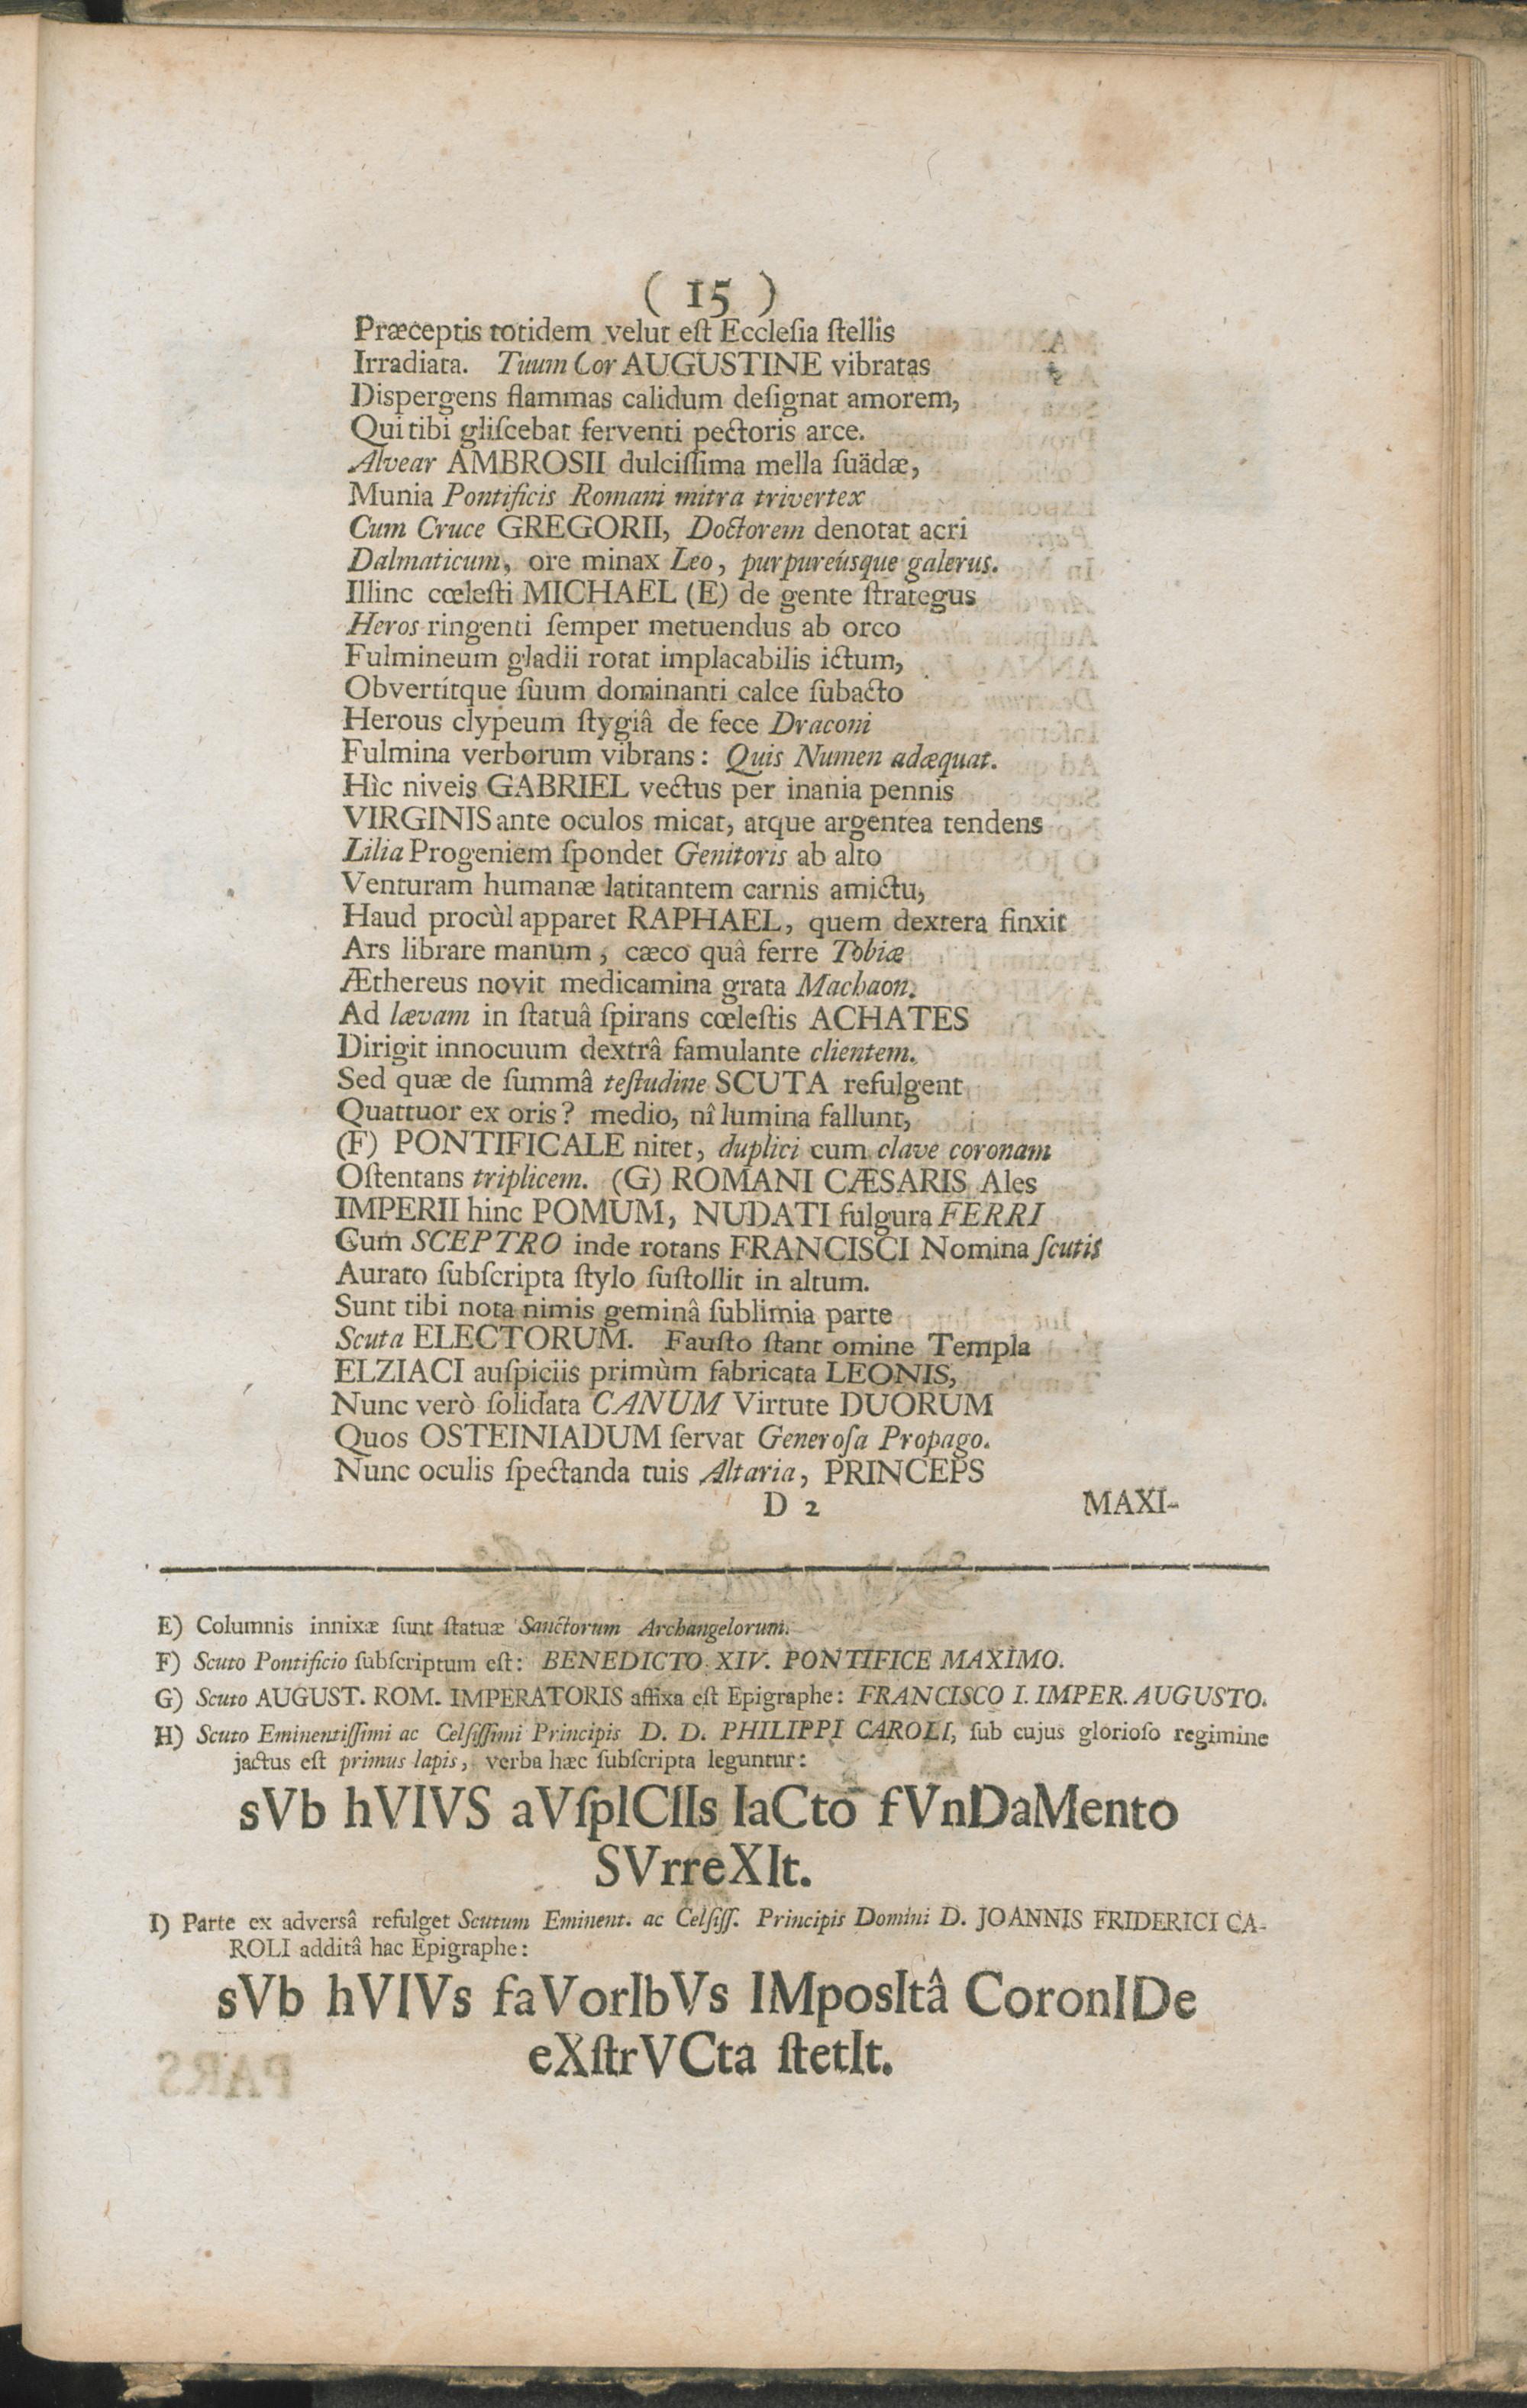 ( 15 )
Præceptis totidem velut eſt Eccleſia ſtellis
Irradiata. Tuum Cor AUGUSTINE vibratas
Diſpergens flammas calidum deſignat amorem,
Qui tibi gliſcebat ferventi pectoris arce.
Alvear AMBROSII dulciſſima mella ſuädæ,
Munia Pontificis Romani mitra trivertex
Cum Cruce GREGORII, Doctorem denotat acri
Dalmaticum, ore minax Leo, purpureúsque galerus.
Illinc cœleſti MICHAEL (E) de gente ſtrategus
Heros ringenti ſemper metuendus ab orco
Fulmineum gladii rotat implacabilis ictum,
Obvertítque ſuum dominanti calce ſubacto
Herous clypeum ſtygiâ de fece Draconi
Fulmina verborum vibrans: Quis Numen adæquat.
Hìc niveis GABRIEL vectus per inania pennis
VIRGINIS ante oculos micat, atque argentea tendens
Lilia Progeniem ſpondet Genitoris ab alto
Venturam humanæ latitantem carnis amictu,
Haud procùl apparet RAPHAEL, quem dextera finxit
Ars librare manum, cæco quâ ferre Tobiæ
Æthereus novit medicamina grata Machaon.
Ad lævam in ſtatuâ ſpirans cœleſtis ACHATES
Dirigit innocuum dextrâ famulante clientem.
Sed quæ de ſummâ teſtudine SCUTA refulgent
Quattuor ex oris? medio, nî lumina fallunt,
(F) PONTIFICALE nitet, duplici cum clave coronam
Oſtentans triplicem. (G) ROMANI CÆSARIS Ales
IMPERII hinc POMUM, NUDATI fulgura FERRI
Cum SCEPTRO inde rotans FRANCISCI Nomina ſcutis
Aurato ſubſcripta ſtylo ſuſtollit in altum.
Sunt tibi nota nimis geminâ ſublimia parte
Scuta ELECTORUM. Fauſto ſtant omine Templa
ELZIACI auſpiciis primùm fabricata LEONIS,
Nunc verò ſolidata CANUM Virtute DUORUM
Quos OSTEINIADUM ſervat Generoſa Propago.
Nunc oculis ſpectanda tuis Altaria, PRINCEPS
D 2 MAXI-
E) Columnis innixæ ſunt ſtatuæ Sanctorum Archangelorum.
F) Scuto Pontificio ſubſcriptum eſt: BENEDICTO XIV. PONTIFICE MAXIMO.
G) Scuto AUGUST. ROM. IMPERATORIS affixa eſt Epigraphe: FRANCISCO I. IMPER. AUGUSTO.
H) Scuto Eminentiſſimi ac Celſiſſimi Principis D. D. PHILIPPI CAROLI, ſub cujus glorioſo regimine
jactus eſt primus lapis, verba hæc ſubſcripta leguntur:
sVb hVIVS aVſpICIIs IaCto fVnDaMento
SVrreXIt.
I) Parte ex adversâ refulget Scutum Eminent. ac Celſiſſ. Principis Domini D. JOANNIS FRIDERICI CA-
ROLI additâ hac Epigraphe:
sVb hVIVs faVorIbVs IMposItâ CoronIDe
eXſtrVCta ſtetIt.